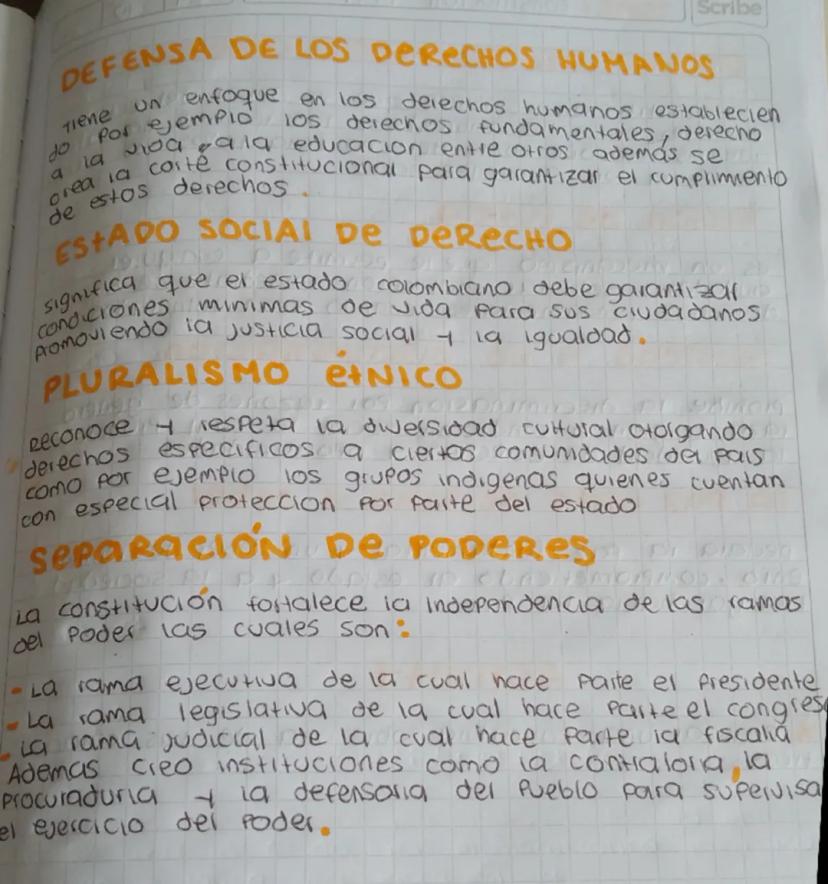 Scribe
DEFENSA DE LOS DERECHOS HUMANOS
Tiene un enfoque en los derechos humanos establecien
do por ejemplo los derechos fundamentales, derecho
a la vida, a la educacion entre otros además se
crea la corte constitucional para garantizar el cumplimiento
de estos derechos.
ESTADO SOCIAL DE DERECHO
significa que el estado colombiano debe garantizar
condiciones minimas de vida para sus ciudadanos
promoviendo la justicia social y la igualdad.
PLURALISMO éTNICO
Reconoce y respeta la diversidad cultural otorgando
derechos especificos a ciertos comunidades del pais
como por ejemplo los grupos indigenas quienes cuentan
con especial proteccion por parte del estado
SEPARACIÓN DE PODERES
La constitución fortalece la independencia de las ramas
del poder las cuales son:
- La rama ejecutiva de la cual hace parte el presidente
- La rama legislativa de la cual hace parte el congres
- La rama judicial de la cual hace parte la fiscalia
Ademas creo instituciones como la contraloria, la
procuraduria y la defensoria del pueblo para supervisa
el ejercicio del poder.